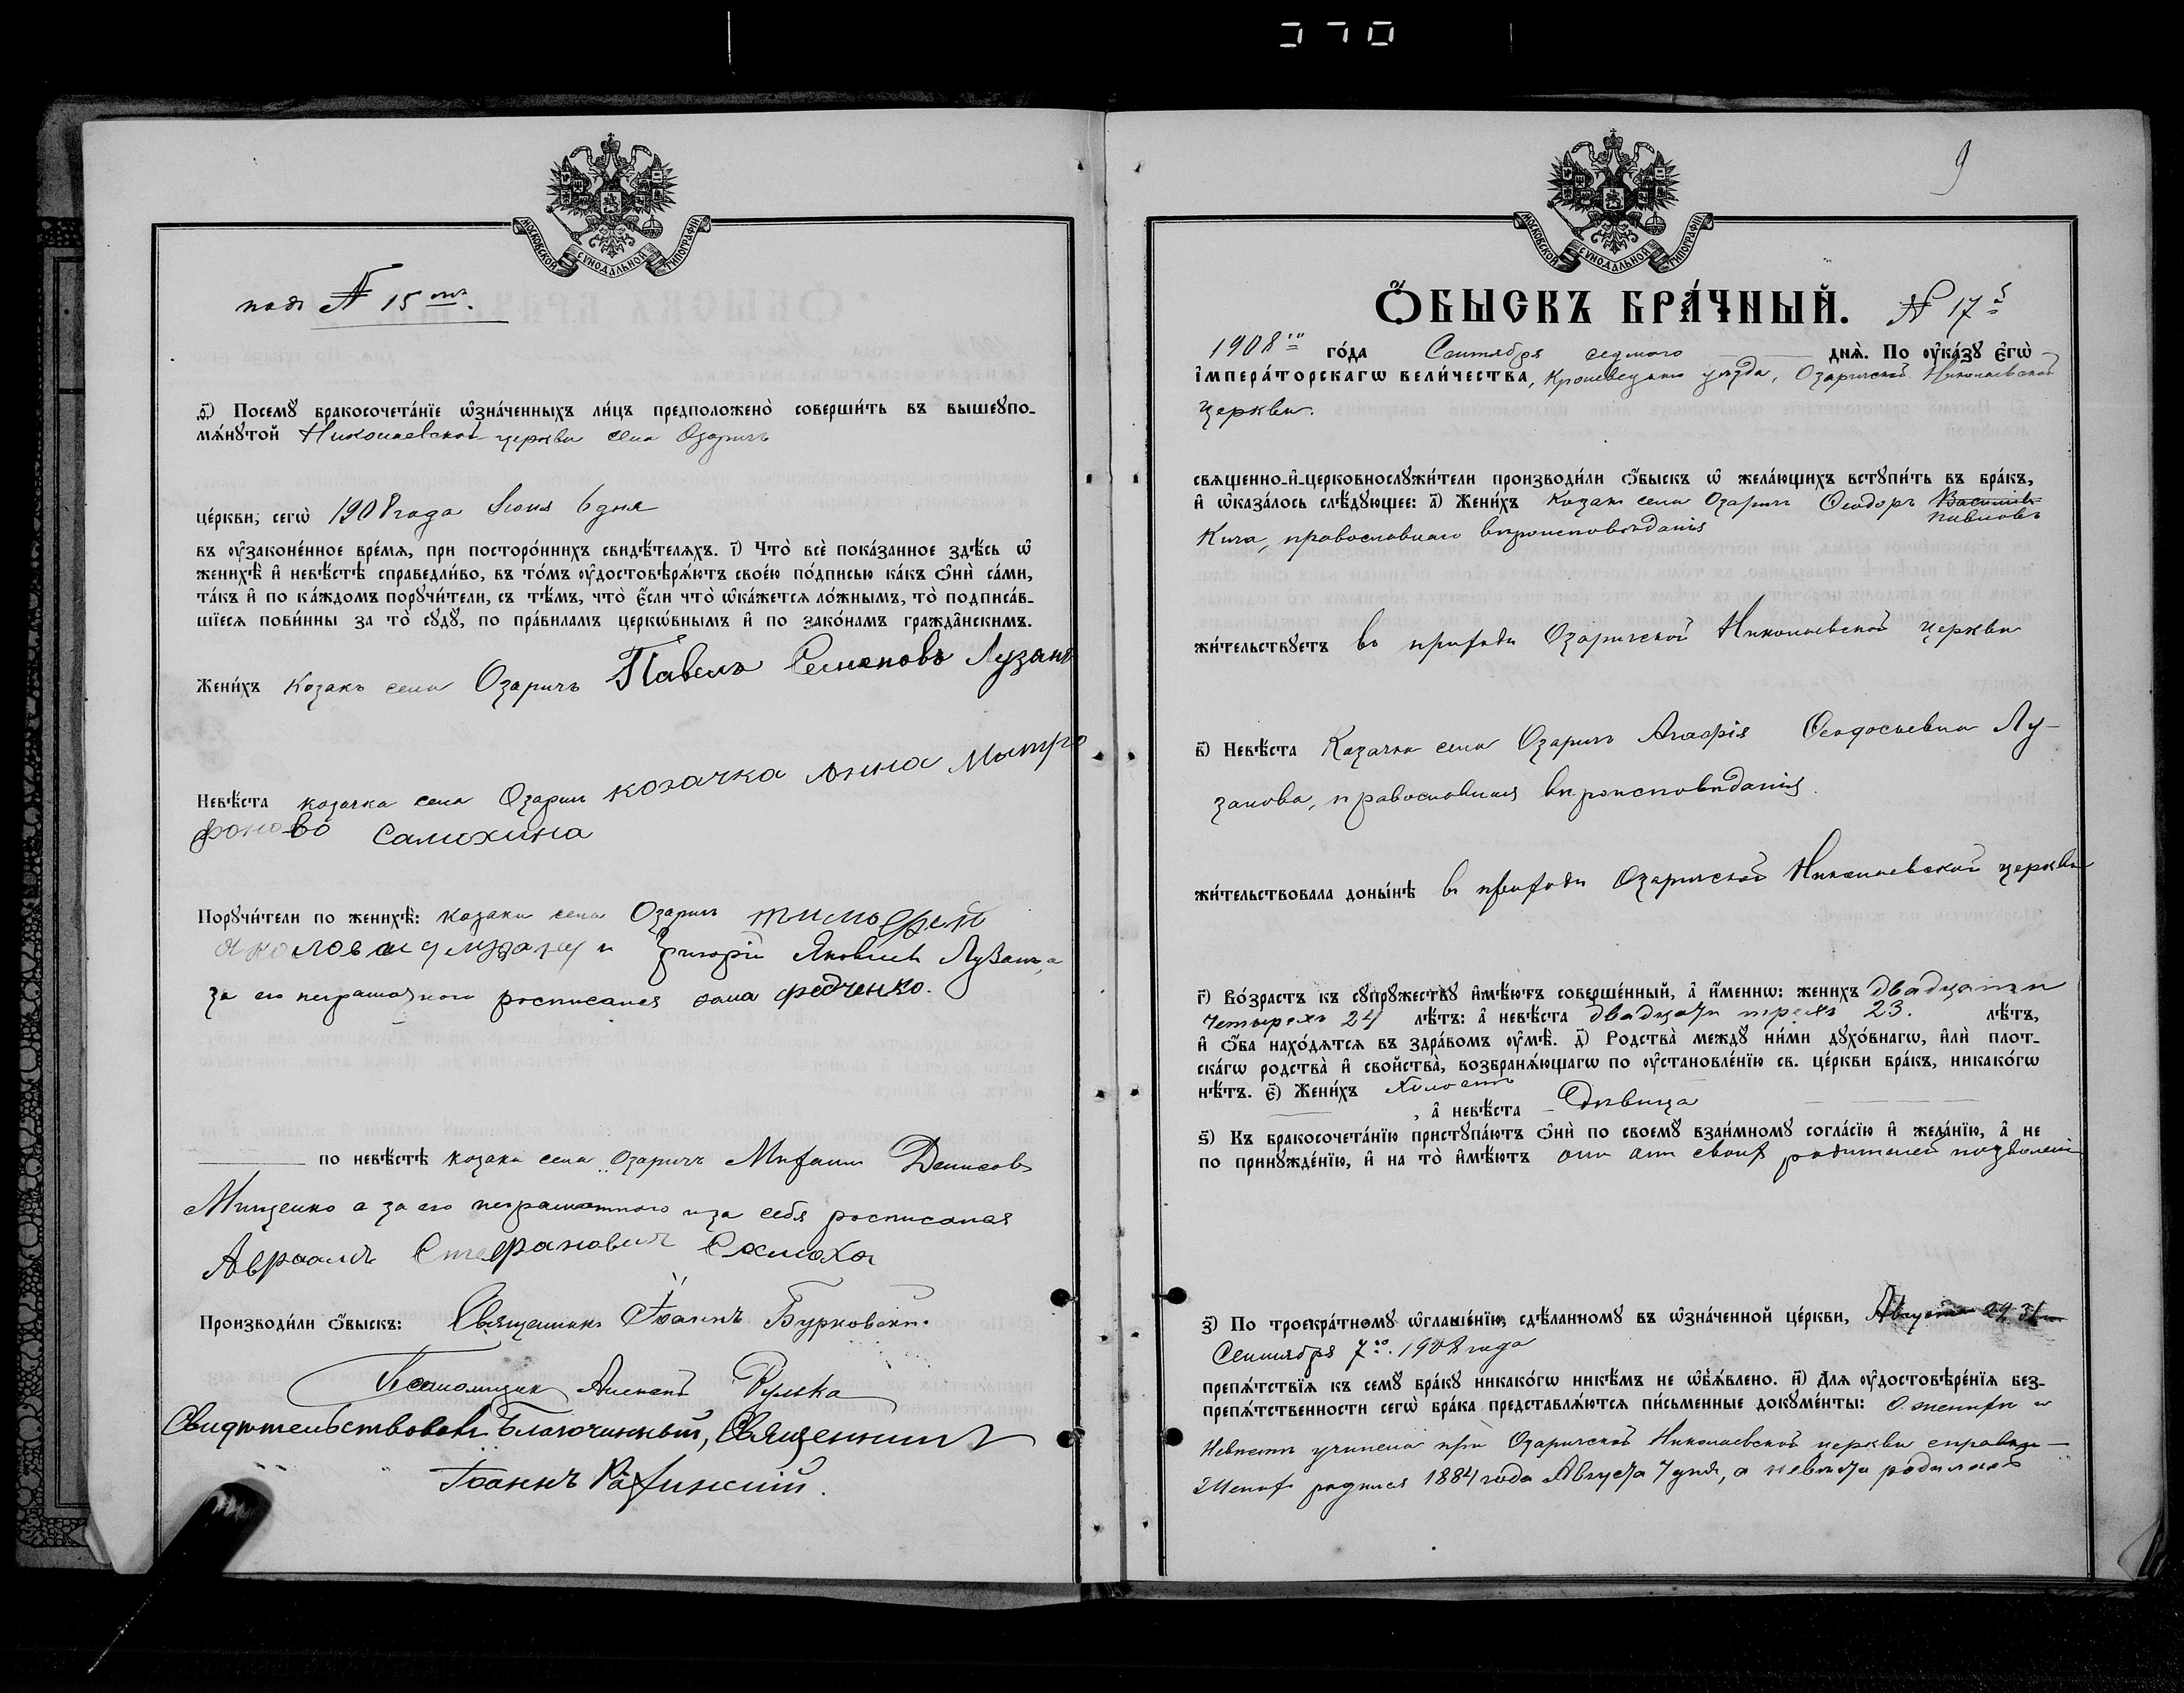 МОСКОВСКОЙ СУНОДАЛЬНОЙ ТИПОГРАФІИ
подъ № 15 мъ.
д҃) Посемꙋ̀ бракосочета́нїе ѡ҆зна́ченныхъ ли́цъ предположено̀ соверши́ть въ вышеꙋпо-
мѧ́нꙋтой Николаевской церкви села Озаричъ
це́ркви, сегѡ̀ 1908 года Іюня 6 дня
въ ᲂу҆законе́нное вре́мѧ, при посторо́ннихъ свидѣ́телѧхъ. і҃) Что̀ всѐ пока́занное здѣ́сь ѡ҆
женихѣ̀ и҆ невѣ́стѣ справедли́во, въ то́мъ ᲂу҆достовѣрѧ́ютъ свое́ю по́дписью ка́къ ѻ҆нѝ са́ми,
та́къ и҆ по ка́ждомъ порꙋчи́тели, съ тѣ́мъ, что̀ є҆́сли что̀ ѡ҆ка́жетсѧ ло́жнымъ, то̀ подписа́в-
шїесѧ пови́нны за то̀ сꙋдꙋ̀, по пра́виламъ церкѡ́внымъ и҆ по зако́намъ гражда̑нскимъ.
Жени́хъ Козакъ села Озаричъ Павелъ Семеновъ Лузанъ
Невѣ́ста козачка села Озаричъ козачка Анна Мытро
фоново Самохина
Порꙋчи́тели по женихѣ̀: козаки села Озаричъ тимофей
и Григорій Яковлевъ Лузанъ, а
за его неграмотного росписался Федченко.
по невѣ́стѣ козаки села Озаричъ Михаилъ Денисовъ
Мищенко а за его неграмотного и за себя росписался
Авраамъ Стефановичъ
Производи́ли ѻ҆́быскъ: Священникъ Іоаннъ Бурковскій.
Псаломщикъ Алексѣй
Свидѣтельствовалъ Благочинный, Священникъ
Іоаннъ
9
МОСКОВСКОЙ СУНОДАЛЬНОЙ ТИПОГРАФІИ
Ѻ҆́БЫСКЪ БРА́ЧНЫЙ. № 17 й
1908 го го́да Сентября седмого днѧ̀. По ᲂу҆ка́зꙋ є҆гѡ̀
і҆мпера́торскагѡ вели́чества, Кролевецкаго уѣзда, Озаричской Николаевской
церкви.
свѧщенно-и҆-церковнослꙋжи́тели производи́ли ѻ҆́быскъ ѡ҆ жела́ющихъ встꙋпи́ть въ бра́къ,
и҆ ѡ҆каза́лось слѣ́дꙋющее: а҃) Жени́хъ Козакъ села Озаричъ Ѳеодоръ Василіевъ
Павловъ
Кига, православнаго вѣроисповѣданія
жи́тельствꙋетъ въ приходѣ Озаричской Николаевской церкви
в҃) Невѣ́ста Козачка села Озаричъ Агафія Ѳеодосьевна Лу-
занова, православнаго вѣроисповѣданія.
жи́тельствовала доны́нѣ въ приходѣ Озаричской Николаевской церкви
г҃) Во́зрастъ къ сꙋпрꙋ́жествꙋ и҆мѣ́ютъ соверше́нный, а҆ и҆́меннѡ: жени́хъ двадцати
четырехъ 24 лѣ́тъ: а҆ невѣ́ста двадцати трехъ 23. лѣ́тъ,
и҆ ѻ҆́ба нахо́дѧтсѧ въ здра́вомъ ᲂу҆мѣ̀. д҃) Родства̀ междꙋ̀ ни́ми дꙋхо́внагѡ, и҆лѝ плот-
ска́гѡ родства̀ и҆ свойства̀, возбранѧ́ющагѡ по ᲂу҆становле́нїю св. це́ркви бра́къ, никако́гѡ
нѣ́тъ. є҃) Жени́хъ Холостъ
, а҆ невѣ́ста Дѣвица
ѕ҃) Къ бракосочета́нїю пристꙋпа́ютъ ѻ҆нѝ по своемꙋ̀ взаи́мномꙋ согла́сїю и҆ жела́нїю, а҆ не
по принꙋжде́нїю, и҆ на то̀ и҆мѣ́ютъ они отъ своих родителей позволеніе
з҃) По троекра́тномꙋ ѡ҆глаше́нїю, сдѣ́ланномꙋ въ ѡ҆зна́ченной це́ркви, Августа 24 31
Сентября 7 го. 1908 года
препѧ́тствїѧ къ семꙋ̀ бра́кꙋ никако́гѡ никѣ́мъ не ѡ҆б̾ѧ́влено. и҃) Длѧ ᲂу҆достовѣре́нїѧ без-
препѧ́тственности сегѡ̀ бра́ка представлѧ́ютсѧ пи́сьменные докꙋме́нты: О женихѣ и
Невѣстѣ учинена при Озаричской Николаевской церкви справка —
Женихъ родился 1884 года Августа 7 дня, а невѣста родилась